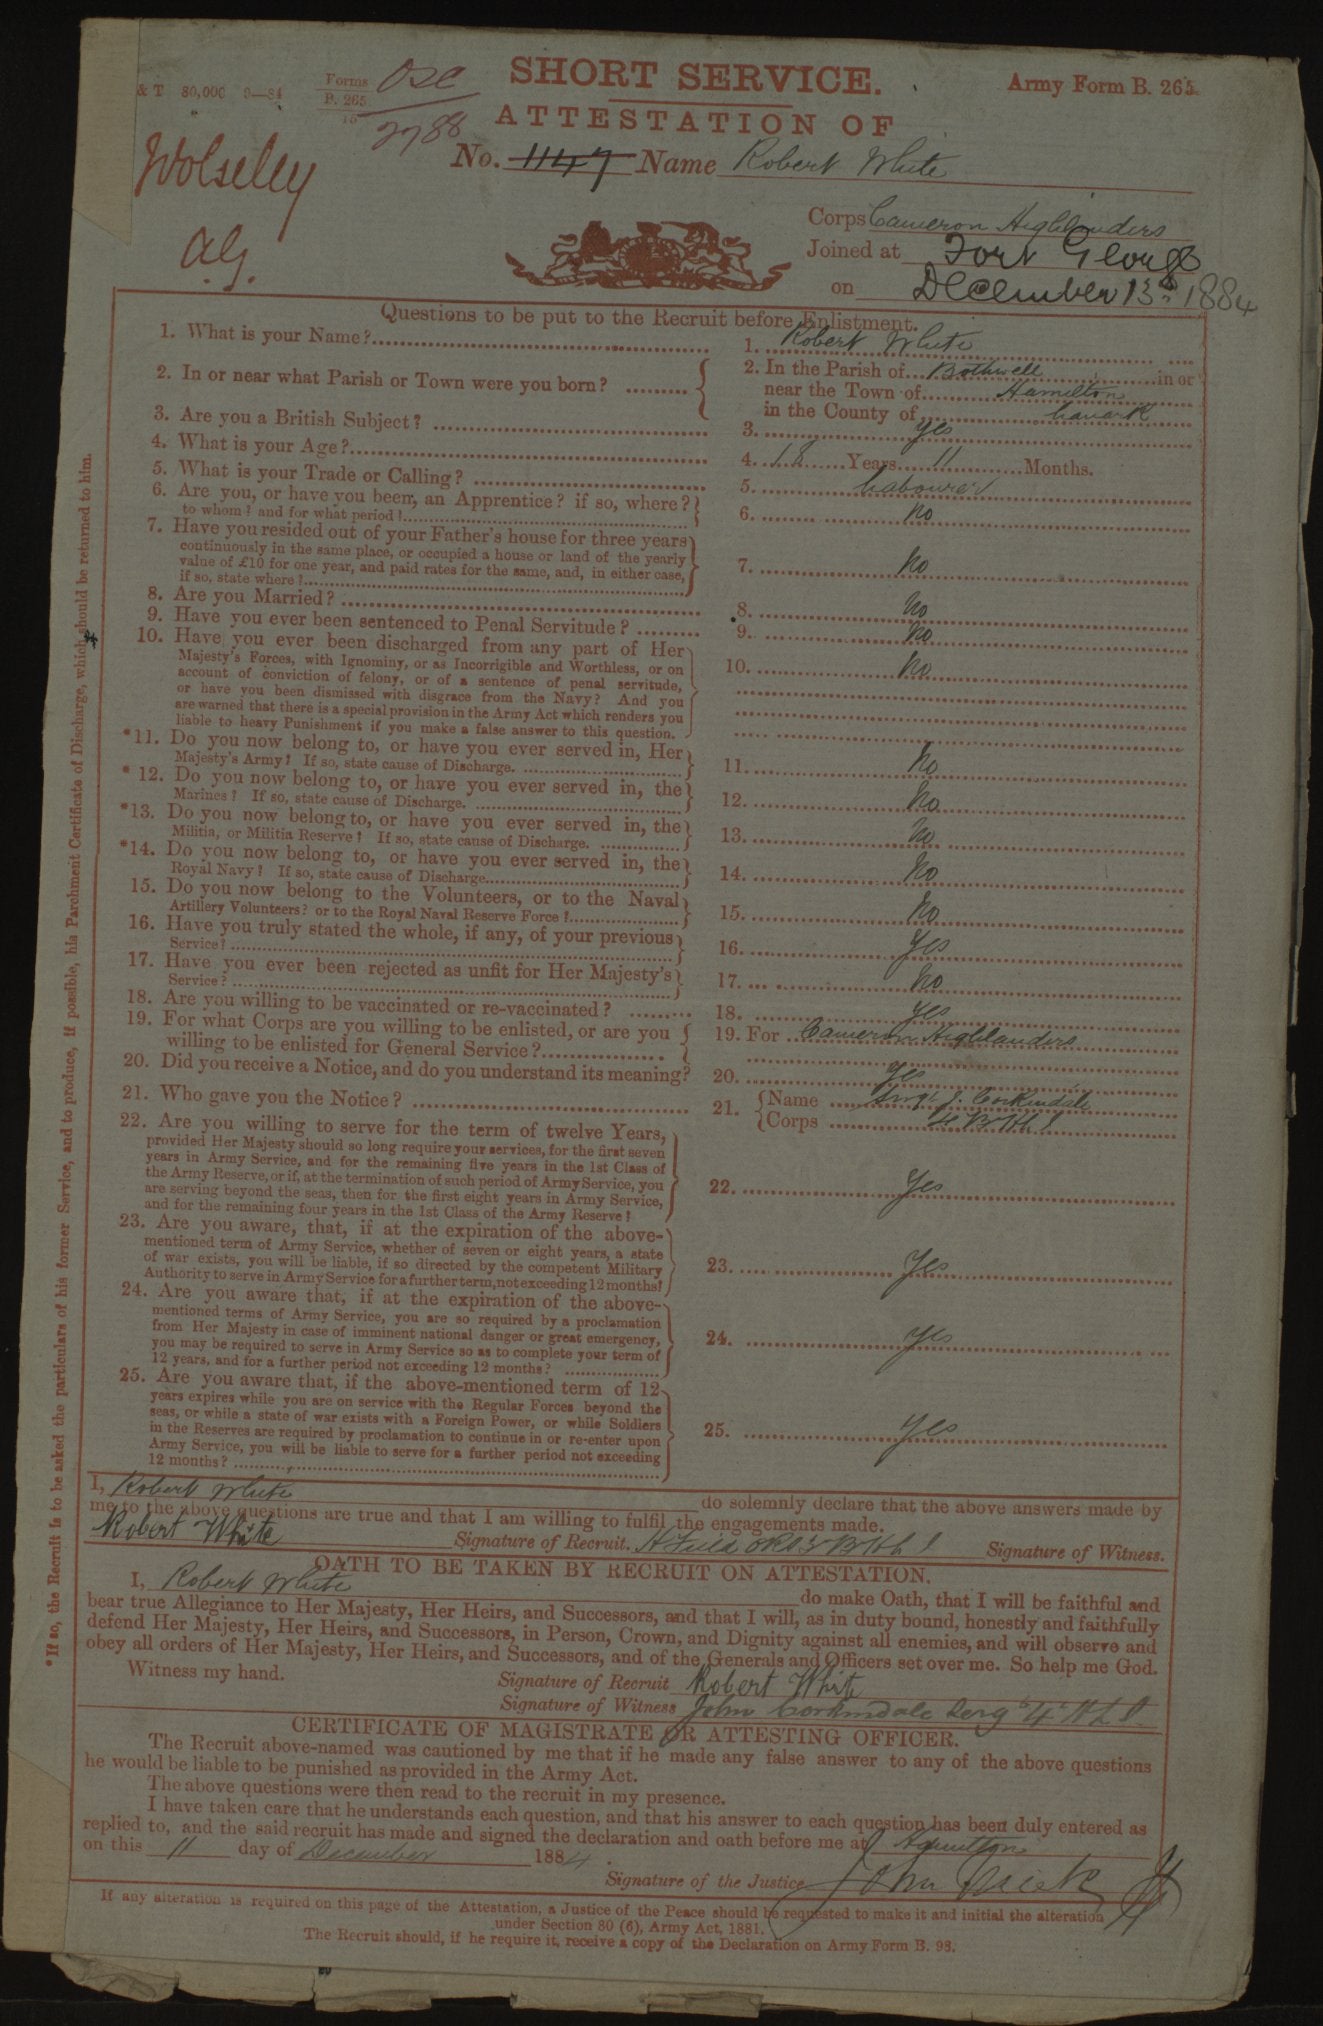 & T 80,000 9—84
Forms
B. 265
15
2788
SHORT SERVICE.
Army Form B. 265.
ATTESTATION OF
No. 1147 Name Robert White
Wolseley
A.G.
Corps Cameron Highlanders
Joined at Fort George
on December 13th 1884
Questions to be put to the Recruit before Enlistment.
1. What is your Name?
1. Robert White
2. In or near what Parish or Town were you born?
2. In the Parish of Bothwell in or
near the Town of Hamilton
in the County of Lanark
3. Are you a British Subject?
3. Yes
4. What is your Age?
4. 18 Years 11 Months.
5. What is your Trade or Calling?
5. Labourer
6. Are you, or have you been, an Apprentice? if so, where?
to whom? and for what period?
6. No
7. Have you resided out of your Father's house for three years
continuously in the same place, or occupied a house or land of the yearly
value of £10 for one year, and paid rates for the same, and, in either case,
if so, state where?
7. No
8. Are you Married?
8. No
9. Have you ever been sentenced to Penal Servitude?
9. No
10. Have you ever been discharged from any part of Her
Majesty's Forces, with Ignominy, or as Incorrigible and Worthless, or on
account of conviction of felony, or of a sentence of penal servitude,
or have you been dismissed with disgrace from the Navy? And you
are warned that there is a special provision in the Army Act which renders you
liable to heavy Punishment if you make a false answer to this question.
10. No
*11. Do you now belong to, or have you ever served in, Her
Majesty's Army? If so, state cause of Discharge.
11. No
*12. Do you now belong to, or have you ever served in, the
Marines? If so, state cause of Discharge.
12. No
*13. Do you now belong to, or have you ever served in, the
Militia, or Militia Reserve? If so, state cause of Discharge.
13. No
*14. Do you now belong to, or have you ever served in, the
Royal Navy? If so, state cause of Discharge
14. No
15. Do you now belong to the Volunteers, or to the Naval
Artillery Volunteers? or to the Royal Naval Reserve Force?
15. No
16. Have you truly stated the whole, if any, of your previous
Service?
16. Yes
17. Have you ever been rejected as unfit for Her Majesty's
Service?
17. No
18. Are you willing to be vaccinated or re-vaccinated?
18. Yes
19. For what Corps are you willing to be enlisted, or are you
willing to be enlisted for General Service?
19. For Cameron Highlanders
20. Did you receive a Notice, and do you understand its meaning?
20. Yes
21. Who gave you the Notice?
21. Name Sergt J. Corkindale
Corps 4 B H L I
22. Are you willing to serve for the term of twelve Years,
provided Her Majesty should so long require your services, for the first seven
years in Army Service, and for the remaining five years in the 1st Class of
the Army Reserve, or if, at the termination of such period of Army Service, you
are serving beyond the seas, then for the first eight years in Army Service,
and for the remaining four years in the 1st Class of the Army Reserve?
22. Yes
23. Are you aware, that, if at the expiration of the above-
mentioned term of Army Service, whether of seven or eight years, a state
of war exists, you will be liable, if so directed by the competent Military
Authority to serve in Army Service for a further term, not exceeding 12 months?
23. Yes
24. Are you aware that, if at the expiration of the above-
mentioned terms of Army Service, you are so required by a proclamation
from Her Majesty in case of imminent national danger or great emergency,
you may be required to serve in Army Service so as to complete your term of
12 years, and for a further period not exceeding 12 months?
24. Yes
25. Are you aware that, if the above-mentioned term of 12
years expires while you are on service with the Regular Forces beyond the
seas, or while a state of war exists with a Foreign Power, or while Soldiers
in the Reserves are required by proclamation to continue in or re-enter upon
Army Service, you will be liable to serve for a further period not exceeding
12 months?
25. Yes
*If so, the Recruit is to be asked the particulars of his former Service, and to produce, if possible, his Parchment Certificate of Discharge, which should be returned to him.
I, Robert White do solemnly declare that the above answers made by
me to the above questions are true and that I am willing to fulfil the engagements made.
Robert White Signature of Recruit. 3 B H L I Signature of Witness.
OATH TO BE TAKEN BY RECRUIT ON ATTESTATION.
I, Robert White do make Oath, that I will be faithful and
bear true Allegiance to Her Majesty, Her Heirs, and Successors, and that I will, as in duty bound, honestly and faithfully
defend Her Majesty, Her Heirs, and Successors, in Person, Crown, and Dignity against all enemies, and will observe and
obey all orders of Her Majesty, Her Heirs, and Successors, and of the Generals and Officers set over me. So help me God.
Witness my hand.
Signature of Recruit Robert White
Signature of Witness John Corkindale Serg 4 H L I
CERTIFICATE OF MAGISTRATE OR ATTESTING OFFICER.
The Recruit above-named was cautioned by me that if he made any false answer to any of the above questions
he would be liable to be punished as provided in the Army Act.
The above questions were then read to the recruit in my presence.
I have taken care that he understands each question, and that his answer to each question has been duly entered as
replied to, and the said recruit has made and signed the declaration and oath before me at Hamilton
on this 11 day of December 1884.
Signature of the Justice John
If any alteration is required on this page of the Attestation, a Justice of the Peace should be requested to make it and initial the alteration
under Section 80 (6), Army Act, 1881.
The Recruit should, if he require it, receive a copy of the Declaration on Army Form B. 98.